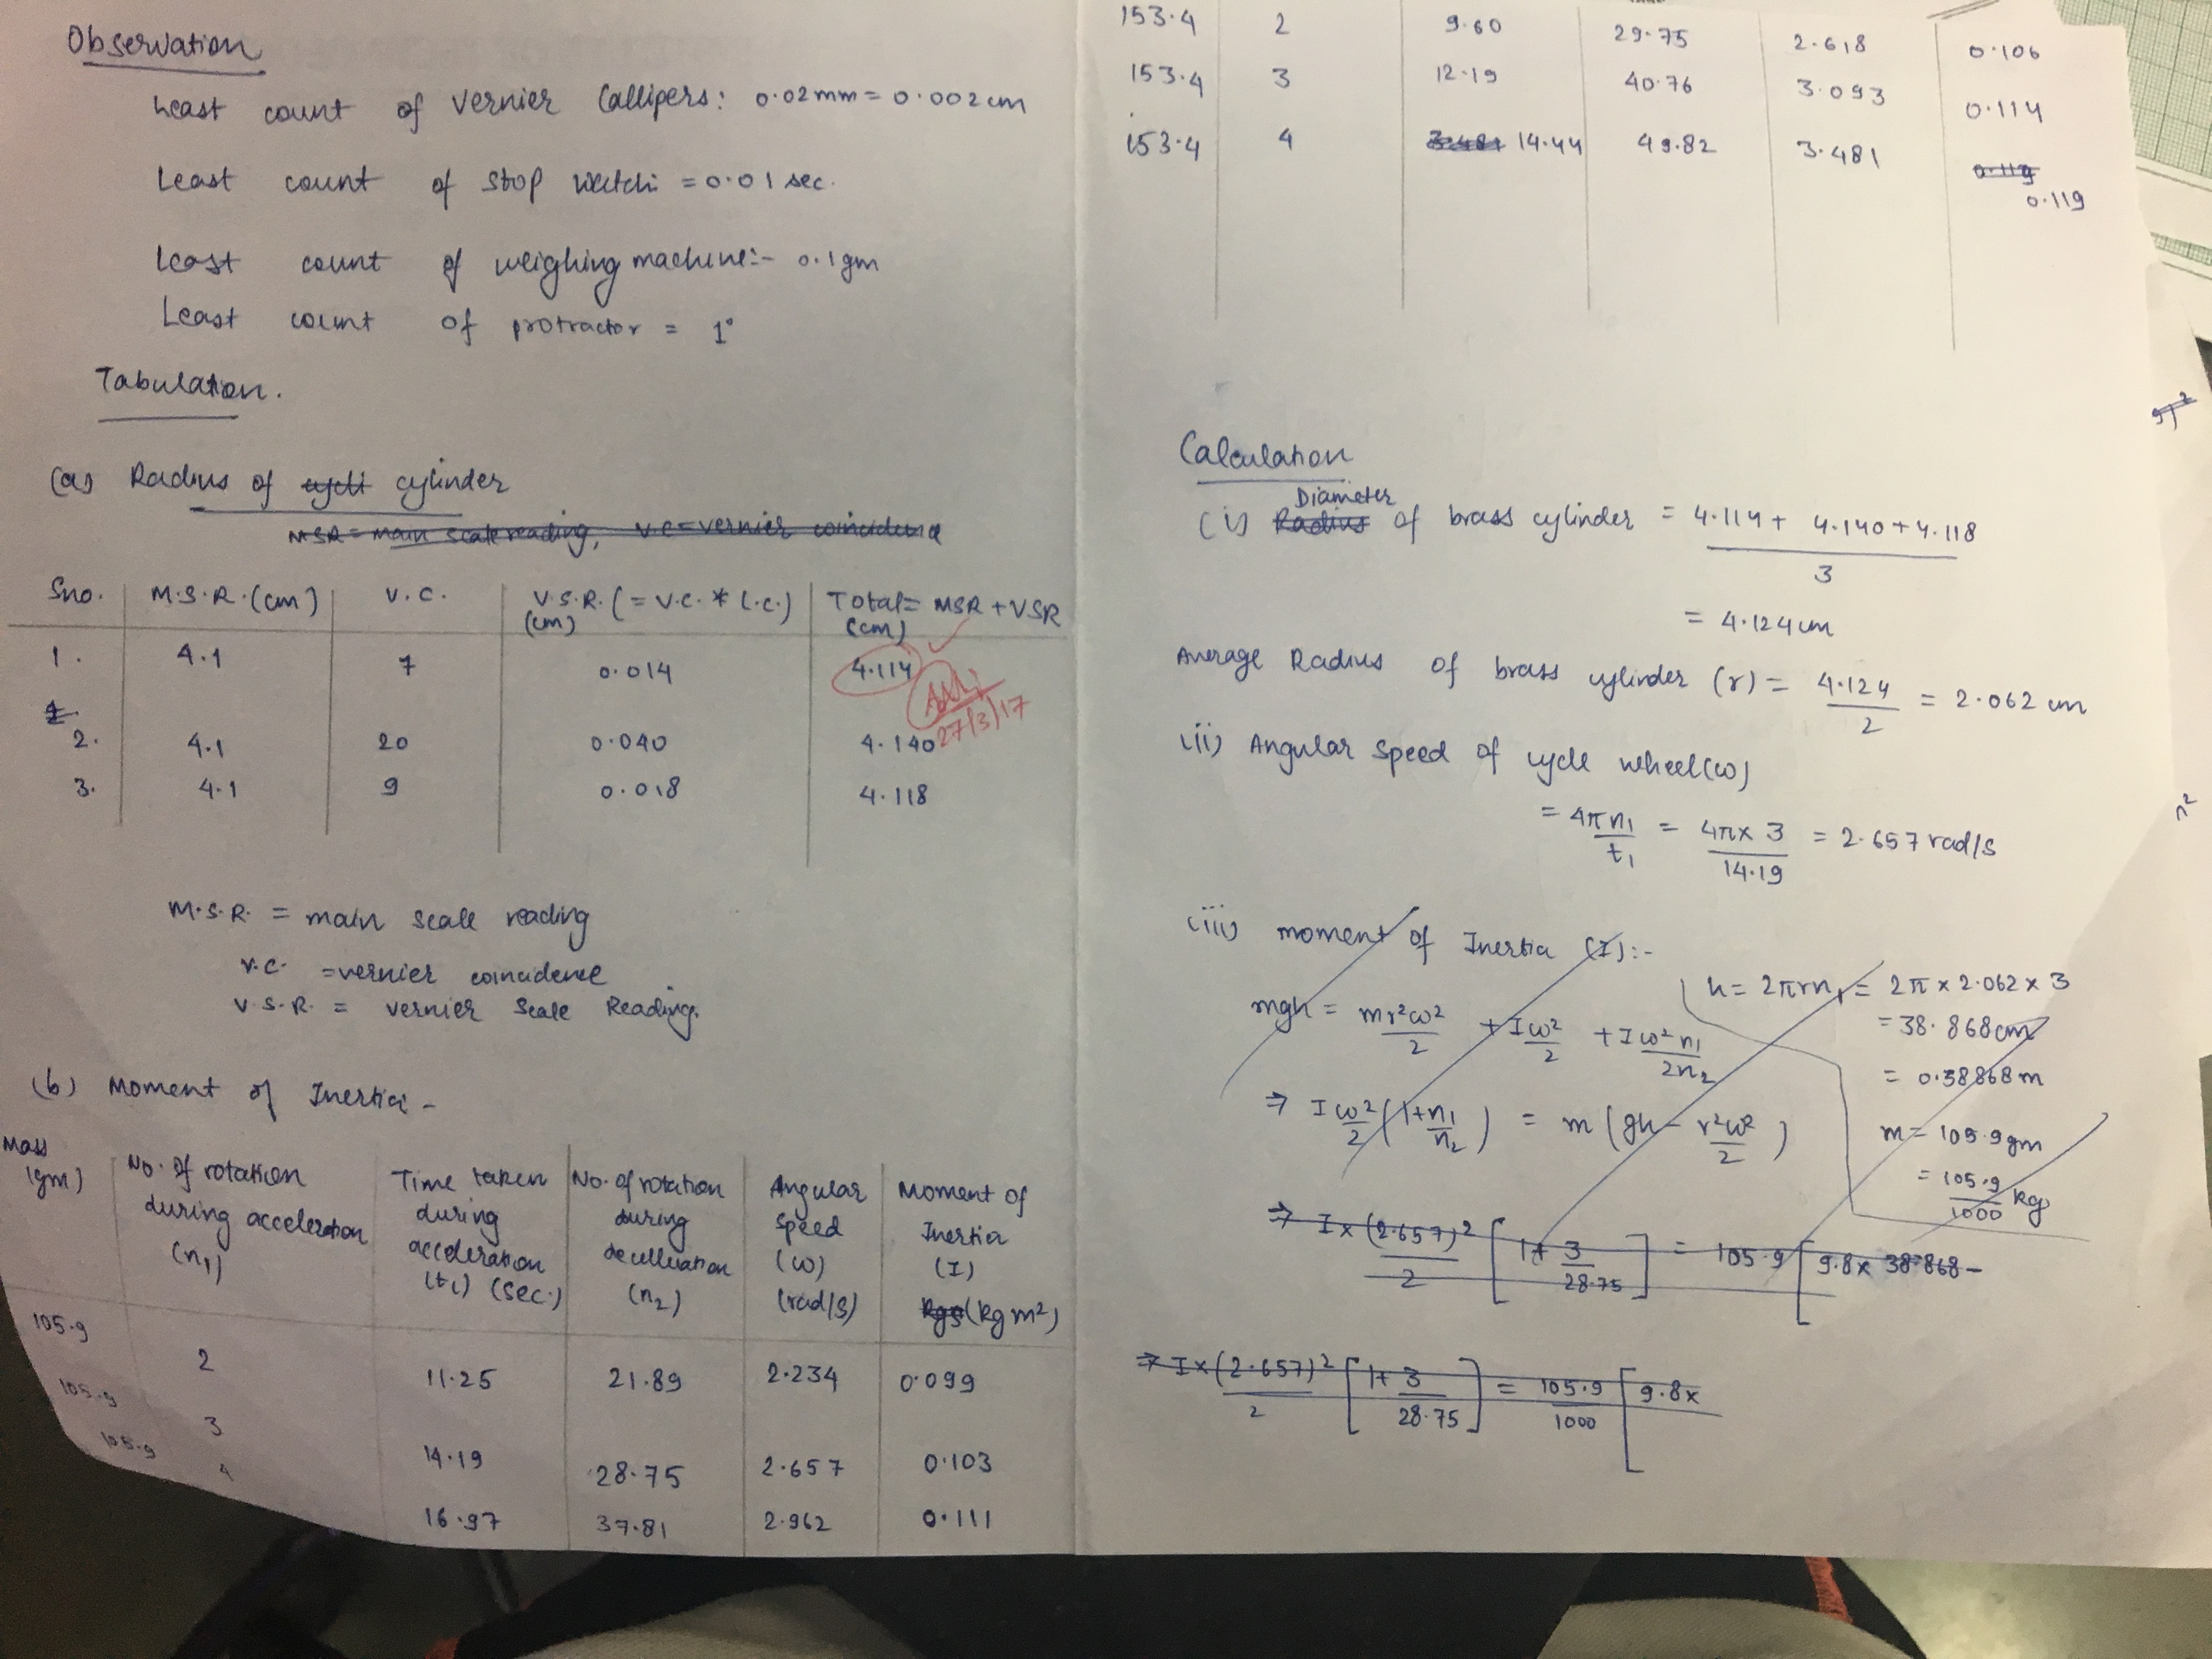 Observation
Least count of vernier Callipers: 0.02mm = 0.002cm
Least count of stop watch: = 0.01 sec.
Least count of weighing machine:- 0.1gm
Least count of protractor = 1°
Tabulation.
(a) Radius of cylinder
MSR = main scale reading, v.c = vernier coincidence
Sno. M.S.R.(cm) V.C. V.S.R.(= V.C. * L.C.) (cm) Total = MSR + VSR (cm)
1. 4.1 7 0.014 4.114
2. 4.1 20 0.040 4.140
3. 4.1 9 0.018 4.118
27/3/17
M.S.R. = main scale reading
V.C. = vernier coincidence
V.S.R. = vernier Scale Reading.
(b) Moment of Inertia -
Mass (gm) No. of rotation during acceleration (n1) Time taken during acceleration (t1) (sec.) No. of rotation during decelleration (n2) Angular Speed (ω) (rad/s) Moment of Inertia (I) (kgm²)
105.9 2 11.25 21.89 2.234 0.099
105.9 3 14.19 28.75 2.657 0.103
105.9 4 16.97 37.81 2.962 0.111
153.4 2 9.60 29.75 2.618 0.106
153.4 3 12.19 40.76 3.093 0.114
153.4 4 14.44 49.82 3.481 0.119
Calculation
(i) Radius Diameter of brass cylinder = 4.114 + 4.140 + 4.118 / 3
= 4.124cm
Average Radius of brass cylinder (r) = 4.124 / 2 = 2.062 cm
(ii) Angular Speed of cycle wheel(ω)
= 4πn1 / t1 = 4π x 3 / 14.19 = 2.657 rad/s
(iii) moment of Inertia (I):-
h = 2πrn1 = 2π x 2.062 x 3
= 38.868cm
= 0.38868 m
m = 105.9gm
= 105.9 / 1000 kg
mgh = mr²ω² / 2 + Iω² / 2 + Iω²n1 / 2n2
⇒ Iω² / 2 (1 + n1 / n2) = m (gh - r²ω² / 2)
⇒ I x (2.657)² / 2 [1 + 3 / 28.75] = 105.9 [9.8 x 38.868 -
⇒ I x (2.657)² / 2 [1 + 3 / 28.75] = 105.9 / 1000 [9.8 x